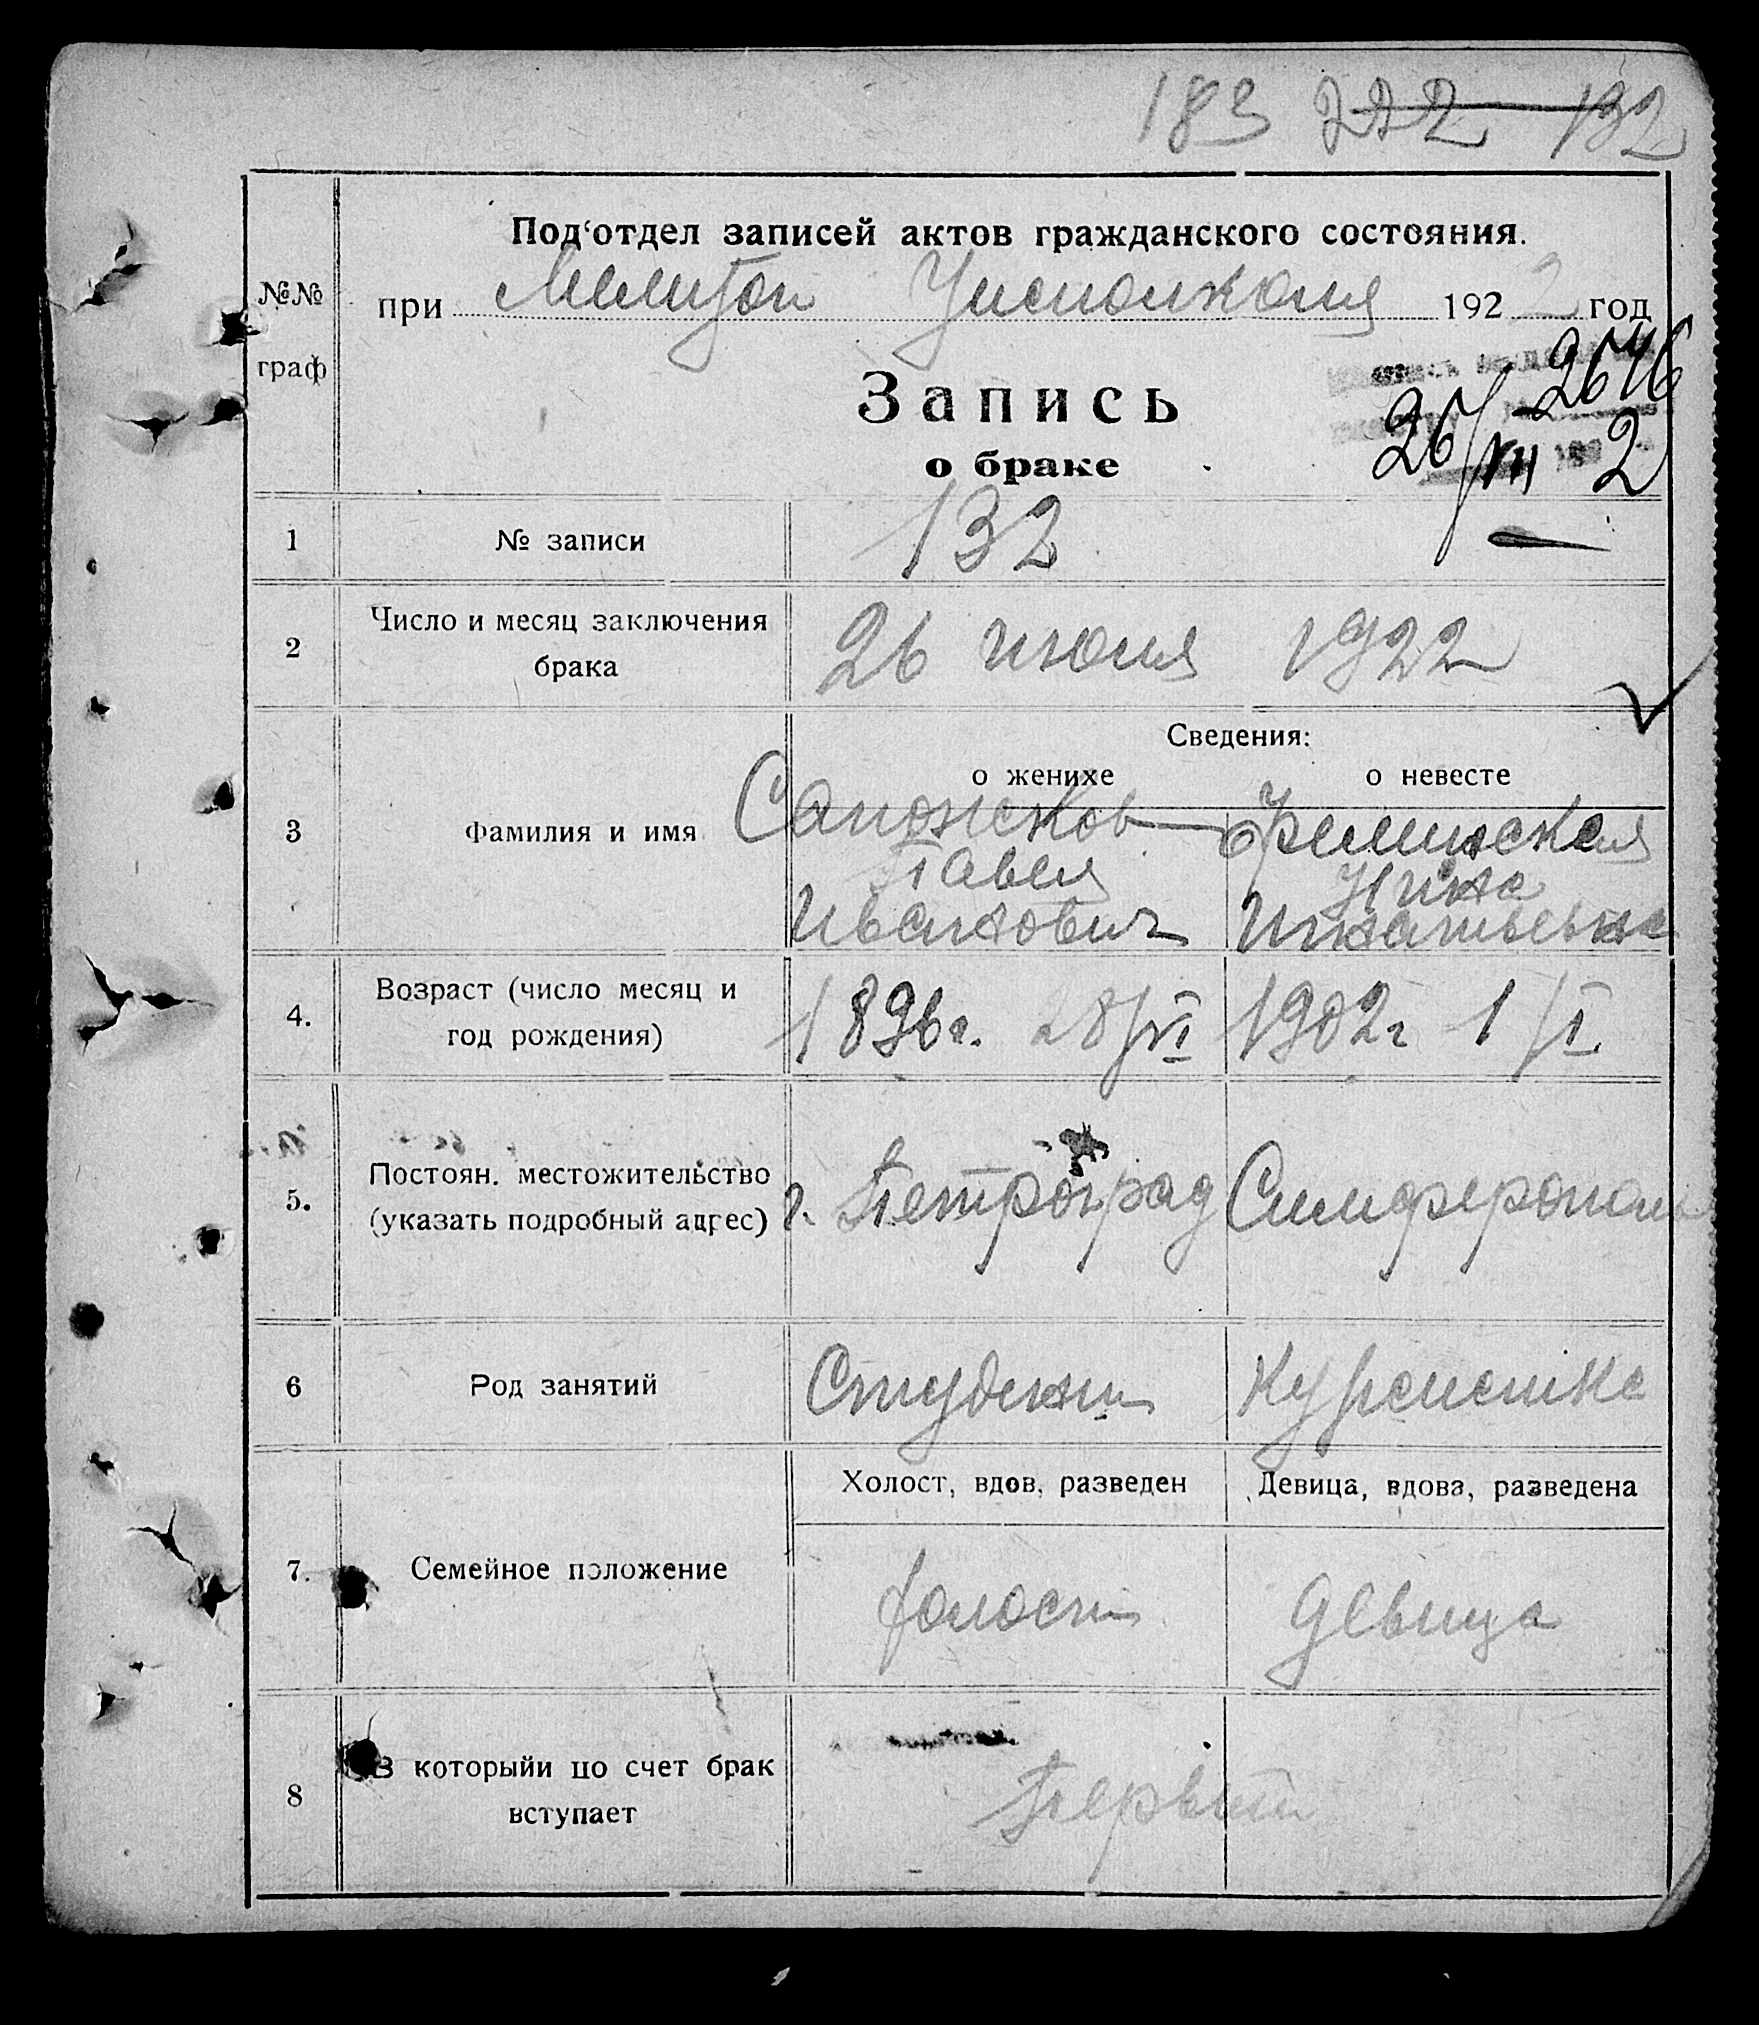 183 222 132
Под‘отдел записей актов гражданского состояния.
№№
при Мелитоп Уисполкома 1922 год
граф
2646
Запись
26/VII 2
о браке
1 № записи 132
2 Число и месяц заключения
брака
26 июля 1922
Сведения:
о женихе о невесте
3 Фамилия и имя
Сапожсков
Павел
Иванович
Нина
Игнатьевна
4. Возраст (число месяц и
год рождения)
1896г. 28/VI 1902г 1/I.
5. Постоян. местожительство
(указать подробный адрес)
г. Петроград Симферополь
6 Род занятий Студент Курсистка
Холост, вдов, разведен Девица, вдова, разведена
7. Семейное положение
холост девица
8 В которыйи по счет брак
вступает
Первый